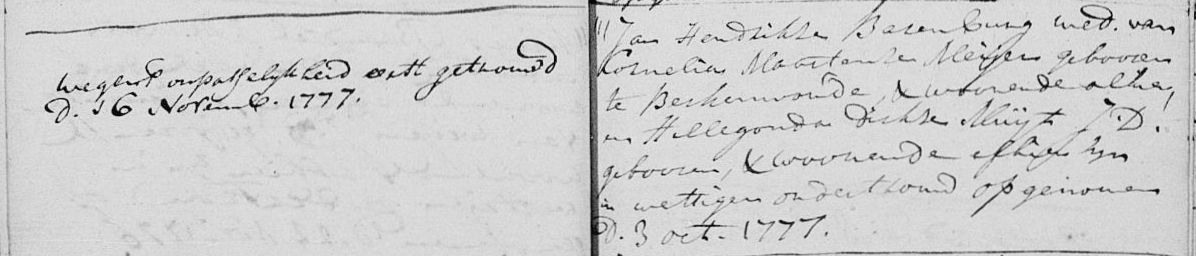 wegens onpasselykheid eerst getrouwd
D. 16 Novemb. 1777.
Jan Hendrikse Basenburg wed. van
Cornelia Maartense Meijers gebooren
te Berkenwoude, & woonende alhier,
en Hillegonda Dirkse Muijt J.D.
gebooren, & woonende alhier zijn
in wettigen ondertrouw opgenomen
D. 3 oct. 1777.